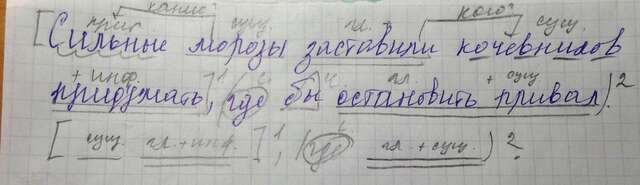 какие? кого?
прил. сущ. гл. сущ.
[Сильные морозы заставили кочевников
+ инф. ]¹ ч. гл. + сущ.
придумать, (где бы остановить привал).²
[ сущ. гл. + инф. ]¹, (где гл + сущ.)²